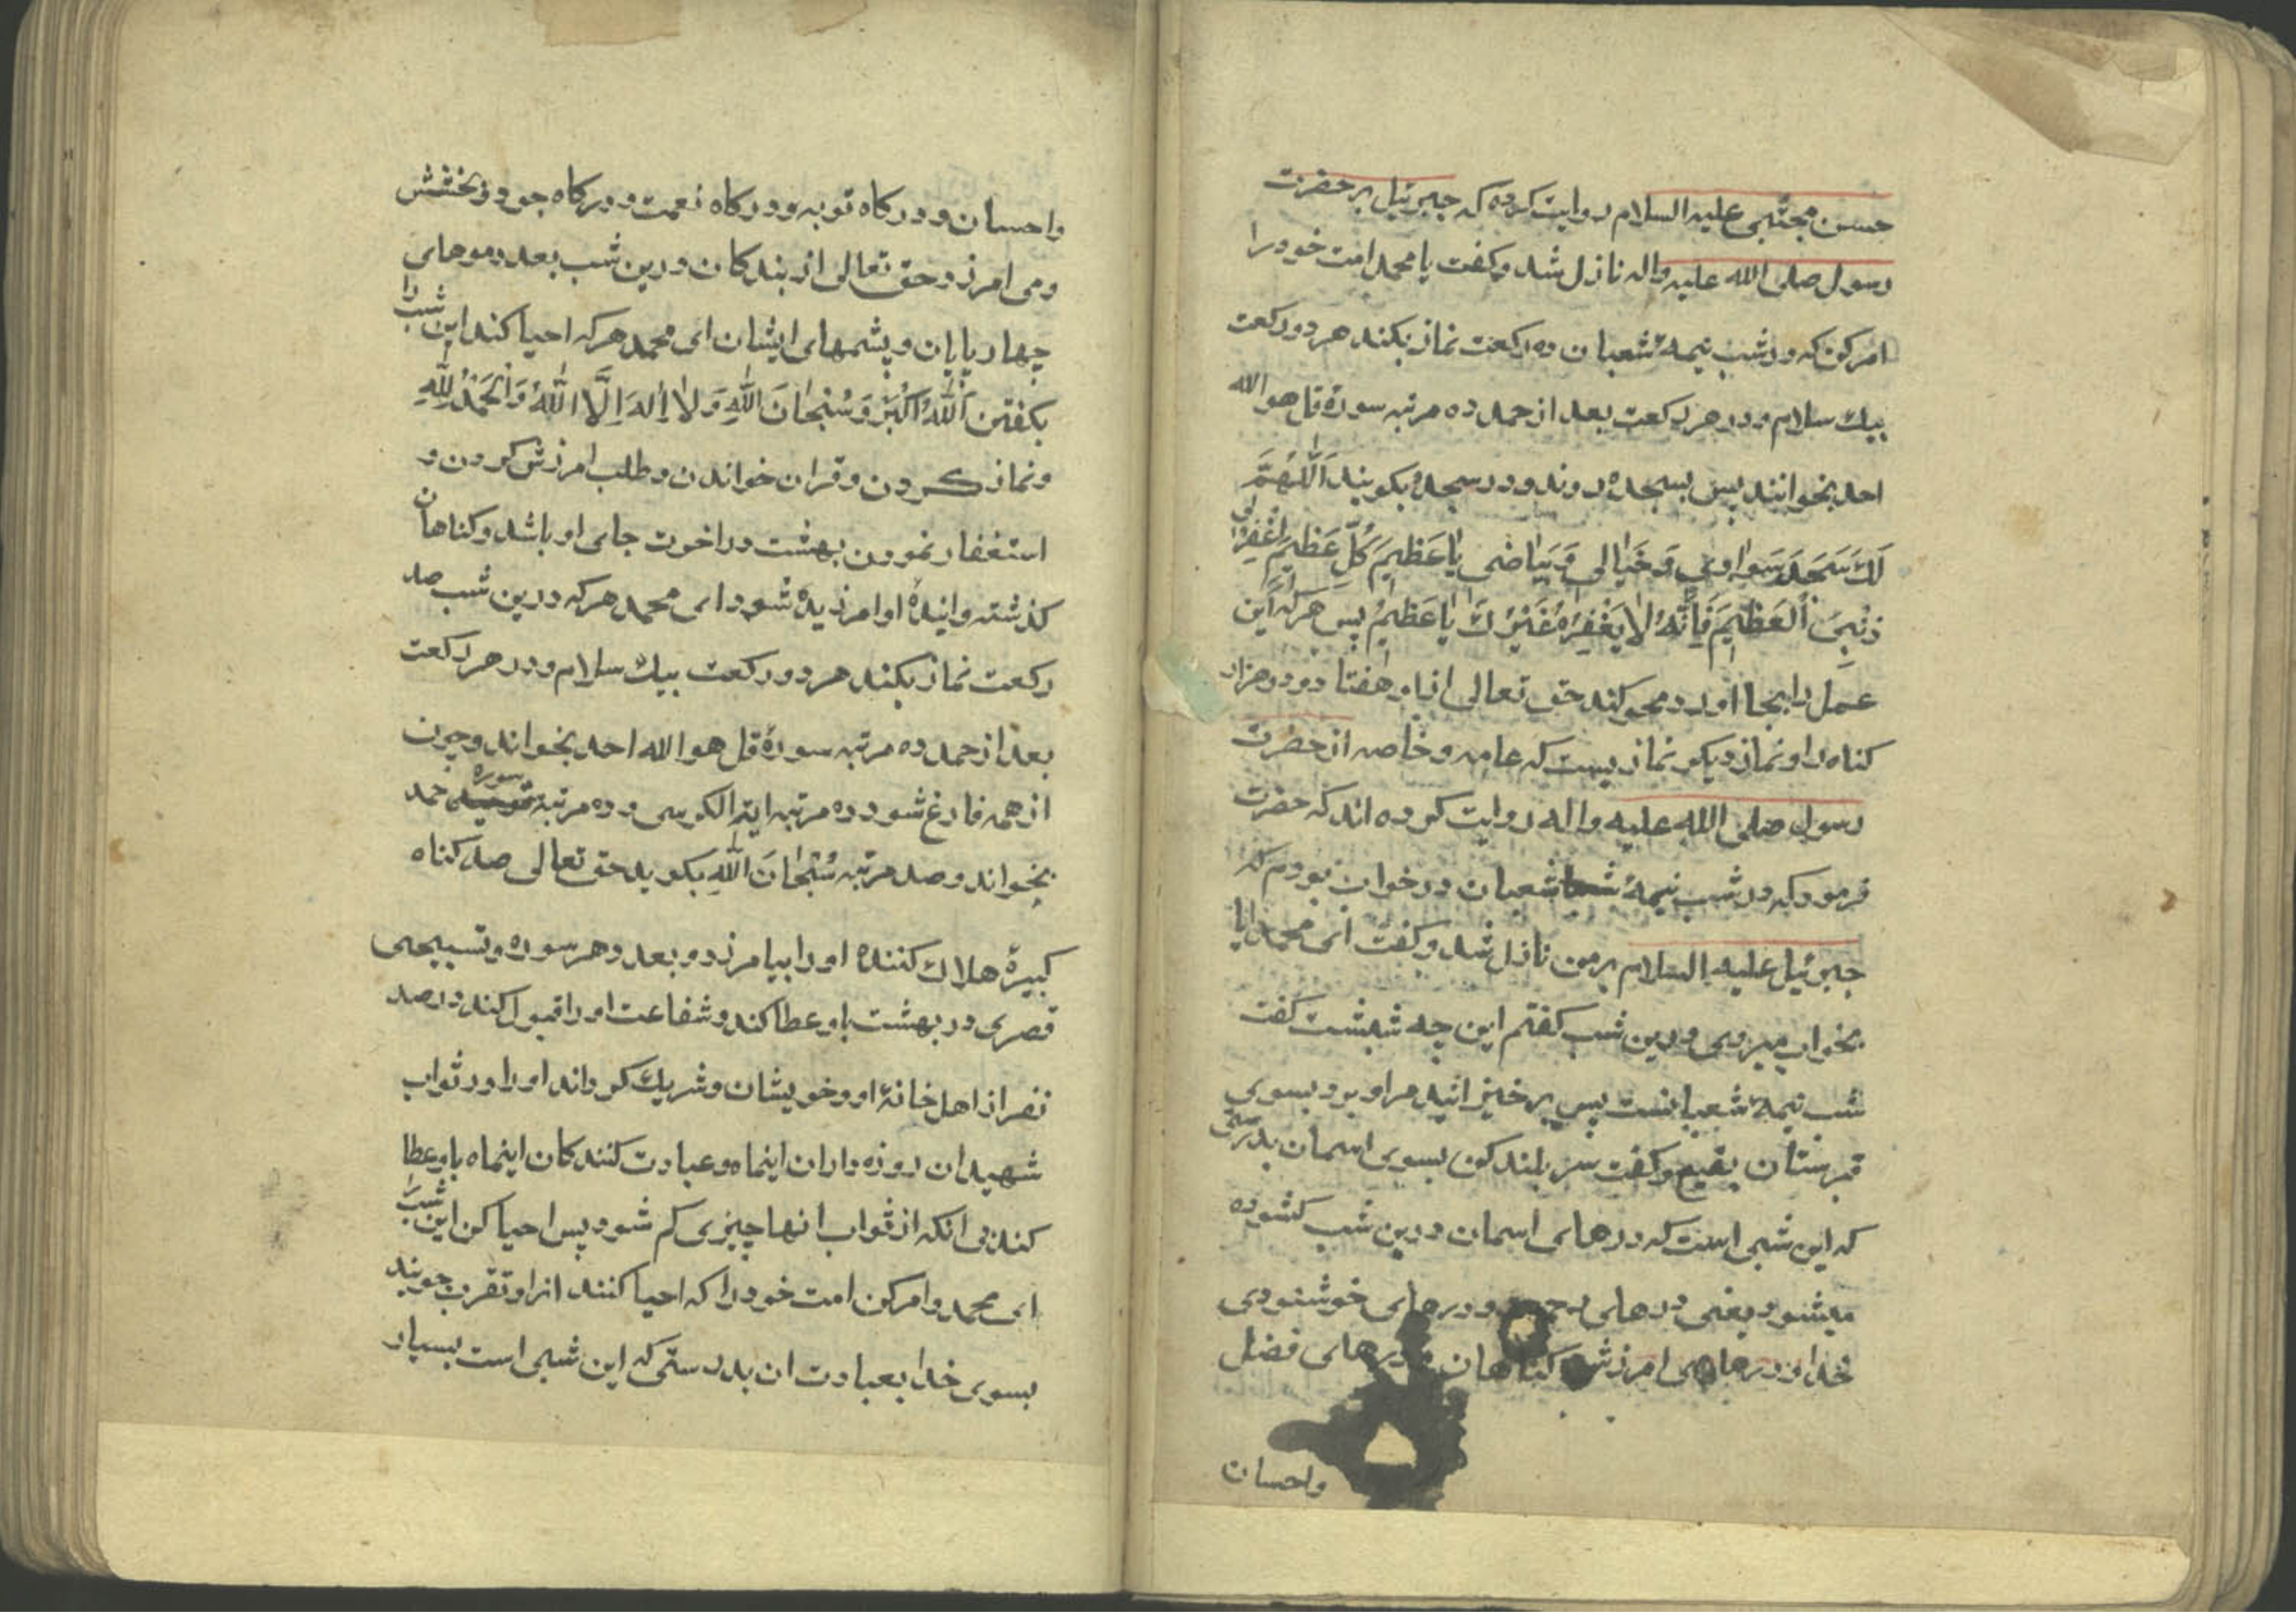 حسن مجتبی علیه السلام روایت کرده که جبرئیل بر حضرت
رسول صلی الله علیه واله نازل شد وکفت یا محمد امت خود را
امر کن که در شب نیمهٔ شعبان ده رکعت نماز بکند هر دو رکعت
بیك سلام ودر هر رکعت بعد از حمد ده مرتبه سورهٔ قل هو الله
احد بخوانند پس بسجده روند ودر سجده بکویند اَللّهُمَّ
لَكَ سَجَدَ سَوادی وَخَیالی وَبَیاضی یا عَظیمَ کُلِّ عَظیمٍ اغْفِرْ لی
ذَنْبِیَ الْعَظیمَ فَاِنَّهُ لا یَغْفِرُهُ غَیْرُكَ یا عَظیمُ پس هر که این
عمل را بجا اورد محو کند حق تعالی از او هفتاد ودو هزار
کناه را ونماز دیکر نمازیست که عامه وخاصه از حضرت
رسول صلی الله علیه واله روایت کرده اند که حضرت
فرمود که در شب نیمهٔ شعبان در خواب بودم که
جبرئیل علیه السلام بر من نازل شد وکفت ای محمد ایا
بخواب میروی درین شب کفتم این چه شبشت کفت
شب نیمهٔ شعبانست پس برخیزانید مرا وبرد بسوی
قبرستان بقیع وکفت سر بلند کن بسوی اسمان بدرستی
که این شبی است که درهای اسمان درین شب کشوده
میشود یعنی درهای رحمت ودرهای خوشنودی
خدا ودرهای امرزش کناهان ودرهای فضل
واحسان
واحسان ودرکاه توبه ودرکاه نعمت ودرکاه جود وبخشش
ومی امرزد حق تعالی از بندکان درین شب بعدد موهای
چهارپایان وپشمهای ایشان ای محمد هر که احیا کند این شب را
بکفتن اَللّهُ اَکْبَرُ وَسُبْحانَ اللّهِ وَلا اِلهَ اِلَّا اللّهُ وَالْحَمْدُ لِلّهِ
ونماز کردن وقران خواندن وطلب امرزش کردن و
استغفار نمودن بهشت در اخرت جای او باشد وکناهان
کذشته وایندهٔ او امرزیده شود ای محمد هر که درین شب صد
رکعت نماز بکند هر دو رکعت بیك سلام ودر هر رکعت
بعد از حمد ده مرتبه سورهٔ قل هو الله احد بخواند وچون
از همه فارغ شود ده مرتبه ایة الکرسی وده مرتبه سوره حمد
بخواند وصد مرتبه سُبْحانَ اللّهِ بکوید حق تعالی صد کناه
کبیرهٔ هلاك کنندهٔ او را بیامرزد وبعدد هر سوره وتسبیحی
قصری در بهشت باو عطا کند وشفاعت او را قبول کند در صد
نفر از اهل خانهٔ او وخویشان وشریك کرداند او را در ثواب
شهیدان روزه داران اینماه وعبادت کنندکان اینماه باو عطا
کند بی انکه از ثواب انها چیزی کم شود پس احیا کن این شب را
ای محمد وامر کن امت خود را که احیا کنند انرا وتقرب جویند
بسوی خدا بعبادت ان بدرستی که این شبی است بسیار